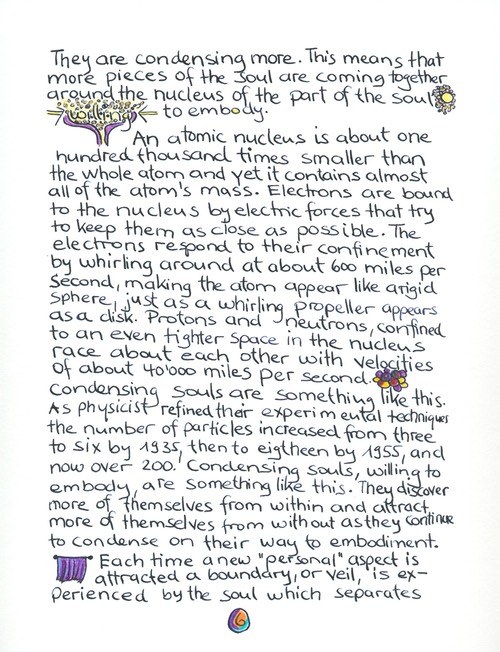 They are condensing more. This means that
more pieces of the Soul are coming together
around the nucleus of the part of the soul
wanting to embody.
An atomic nucleus is about one
hundred thousand times smaller than
the whole atom and yet it contains almost
all of the atom's mass. Electrons are bound
to the nucleus by electric forces that try
to keep them as close as possible. The
electrons respond to their confinement
by whirling around at about 600 miles per
Second, making the atom appear like a rigid
sphere, just as a whirling propeller appears
as a disk. Protons and neutrons, confined
to an even tighter space in the nucleus
race about each other with velocities
of about 40'000 miles per second.
Condensing souls are something like this.
As physicist refined their experimental techniques
the number of particles increased from three
to six by 1935, then to eigtheen by 1955, and
now over 200. Condensing souls, willing to
embody, are something like this. They discover
more of themselves from within and attract
more of themselves from without as they continue
to condense on their way to embodiment.
Each time a new "personal" aspect is
attracted a boundary, or veil, is ex-
perienced by the soul which separates
6